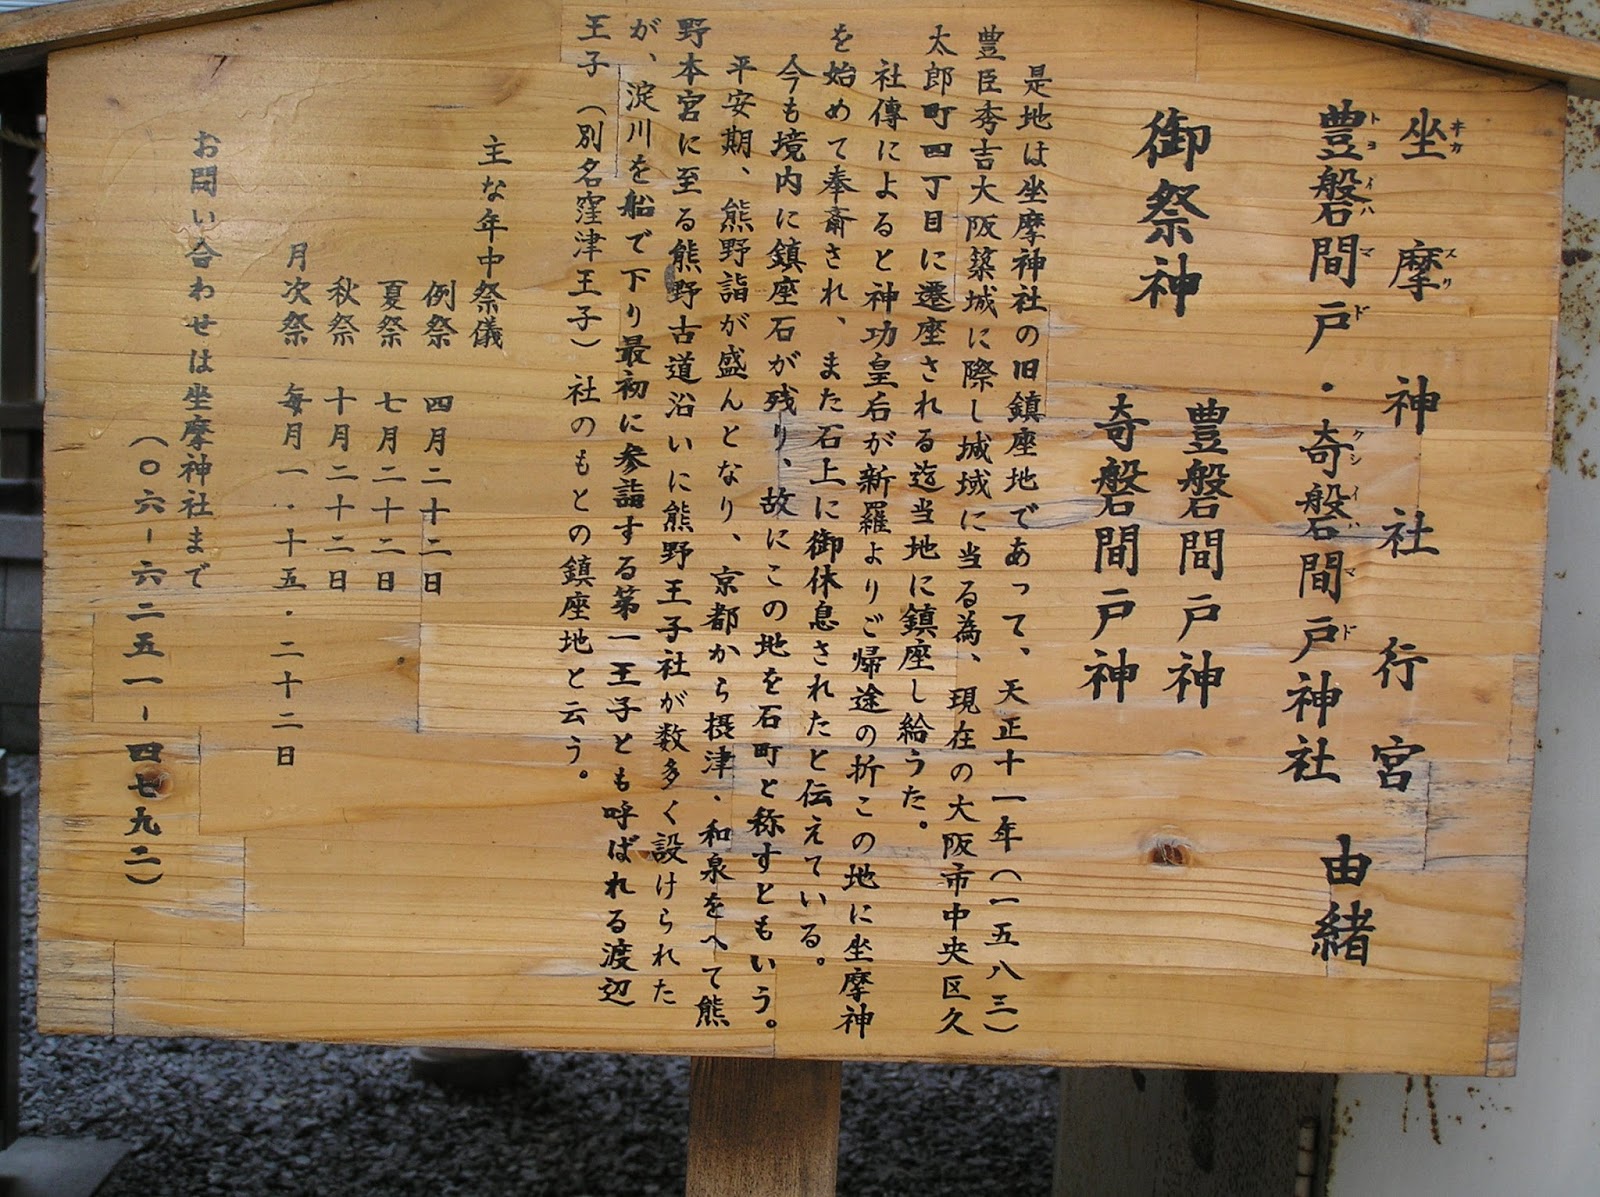 坐摩神社行宮
ヰカスリ
豊磐間戸・奇磐間戸神社 由緒
トヨイハマド クシイバマド
御祭神
豊磐間戸神
奇磐間戸神
是地は坐摩神社の旧鎮座地であって、天正十一年(一五八三)
豊臣秀吉大阪築城に際し城域に当る為、現在の大阪市中央区久
太郎町四丁目に遷座される迄当地に鎮座し給うた。
社傳によると神功皇后が新羅よりご帰途の折この地に坐摩神
を始めて奉斎され、また石上に御休息されたと伝えている。
今も境内に鎮座石が残り、故にこの地を石町と称すともいう。
平安期、熊野詣が盛んとなり、京都から摂津・和泉をへて熊
野本宮に至る熊野古道沿いに熊野王子社が数多く設けられた
が、淀川を船で下り最初に参詣する第一王子とも呼ばれる渡辺
王子(別名窪津王子)社のもとの鎮座地と云う。
主な年中祭儀
例祭 四月二十二日
夏祭 七月二十二日
秋祭 十月二十二日
月次祭 毎月一・十五・二十二日
お問い合わせは坐摩神社まで
(〇六-六二五一-四七九二)